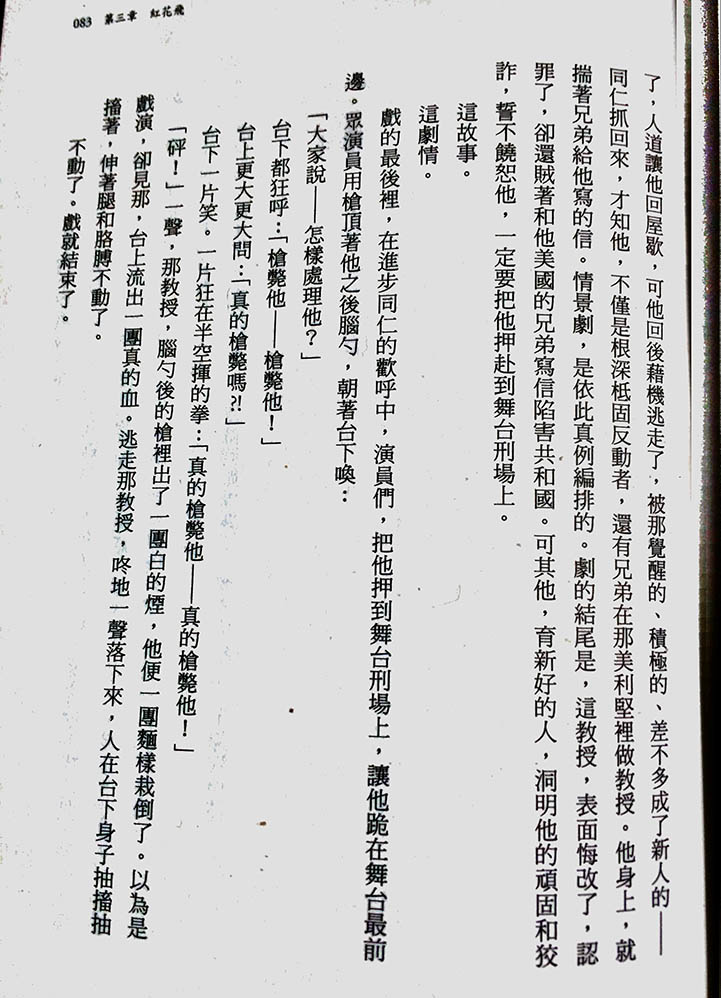 083 第三章 紅花飛
了，人道讓他回屋歇，可他回後藉機逃走了，被那覺醒的、積極的、差不多成了新人的——
同仁抓回來，才知他，不僅是根深柢固反動者，還有兄弟在那美利堅裡做教授。他身上，就
揣著兄弟給他寫的信。情景劇，是依此真例編排的。劇的結尾是，這教授，表面悔改了，認
罪了，卻還賊著和他美國的兄弟寫信陷害共和國。可其他，育新好的人，洞明他的頑固和狡
詐，誓不饒恕他，一定要把他押赴到舞台刑場上。
這故事。
這劇情。
戲的最後裡，在進步同仁的歡呼中，演員們，把他押到舞台刑場上，讓他跪在舞台最前
邊。眾演員用槍頂著他之後腦勺，朝著台下喚：
「大家說——怎樣處理他？」
台下都狂呼：「槍斃他——槍斃他！」
台上更大更大問：「真的槍斃嗎?!」
台下一片笑。一片狂在半空揮的拳：「真的槍斃他——真的槍斃他！」
「砰！」一聲，那教授，腦勺後的槍裡出了一團白的煙，他便一團麵樣栽倒了。以為是
戲演，卻見那，台上流出一團真的血。逃走那教授，咚地一聲落下來，人在台下身子抽搐抽
搐著，伸著腿和胳膊不動了。
不動了。戲就結束了。